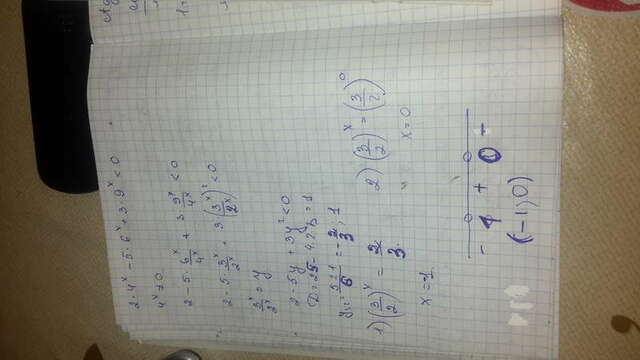 2·4ˣ - 5·6ˣ + 3·9ˣ < 0
4ˣ ≠ 0
2 - 5·6ˣ/4ˣ + 3·9ˣ/4ˣ < 0
2 - 5·3ˣ/2ˣ + 3(3ˣ/2ˣ)² < 0
3ˣ/2ˣ = y
2 - 5y + 3y² < 0
D = 25 - 4·2·3 = 1
y₁,₂ = 5±1/6 = 2/3; 1
1) (3/2)ˣ = 2/3
x = -1
2) (3/2)ˣ = (3/2)⁰
x = 0
- 1 + 0 -
(-1; 0)